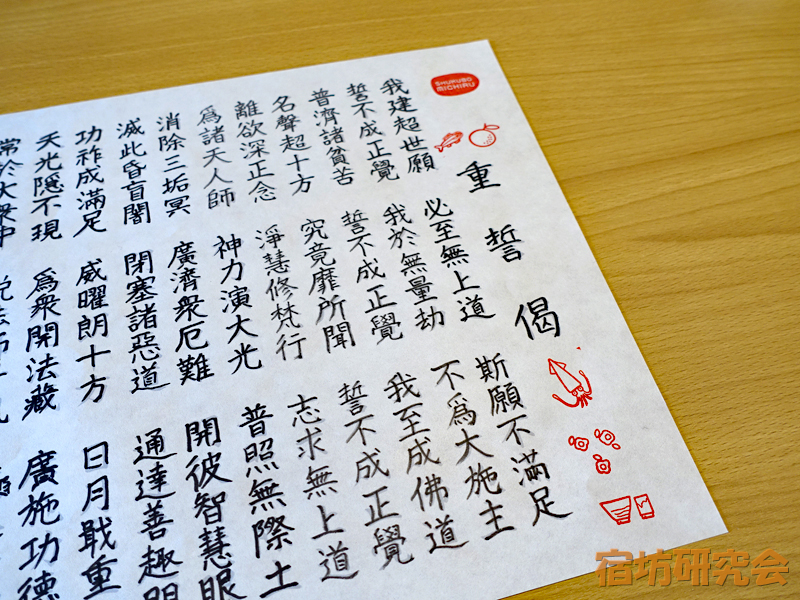 SHUKUBO
MICHIRU
重誓偈
我建超世願 必至無上道 斯願不滿足
誓不成正覺 我於無量劫 不爲大施主
普濟諸貧苦 誓不成正覺 我至成佛道
名聲超十方 究竟靡所聞 誓不成正覺
離欲深正念 淨慧修梵行 志求無上道
爲諸天人師 神力演大光 普照無際土
消除三垢冥 廣濟衆厄難 開彼智慧眼
滅此昏盲闇 閉塞諸惡道 通達善趣門
功祚成滿足 威曜朗十方 日月戢重
天光隱不現 爲衆開法藏 廣施功德
常於大衆中
宿坊研究会